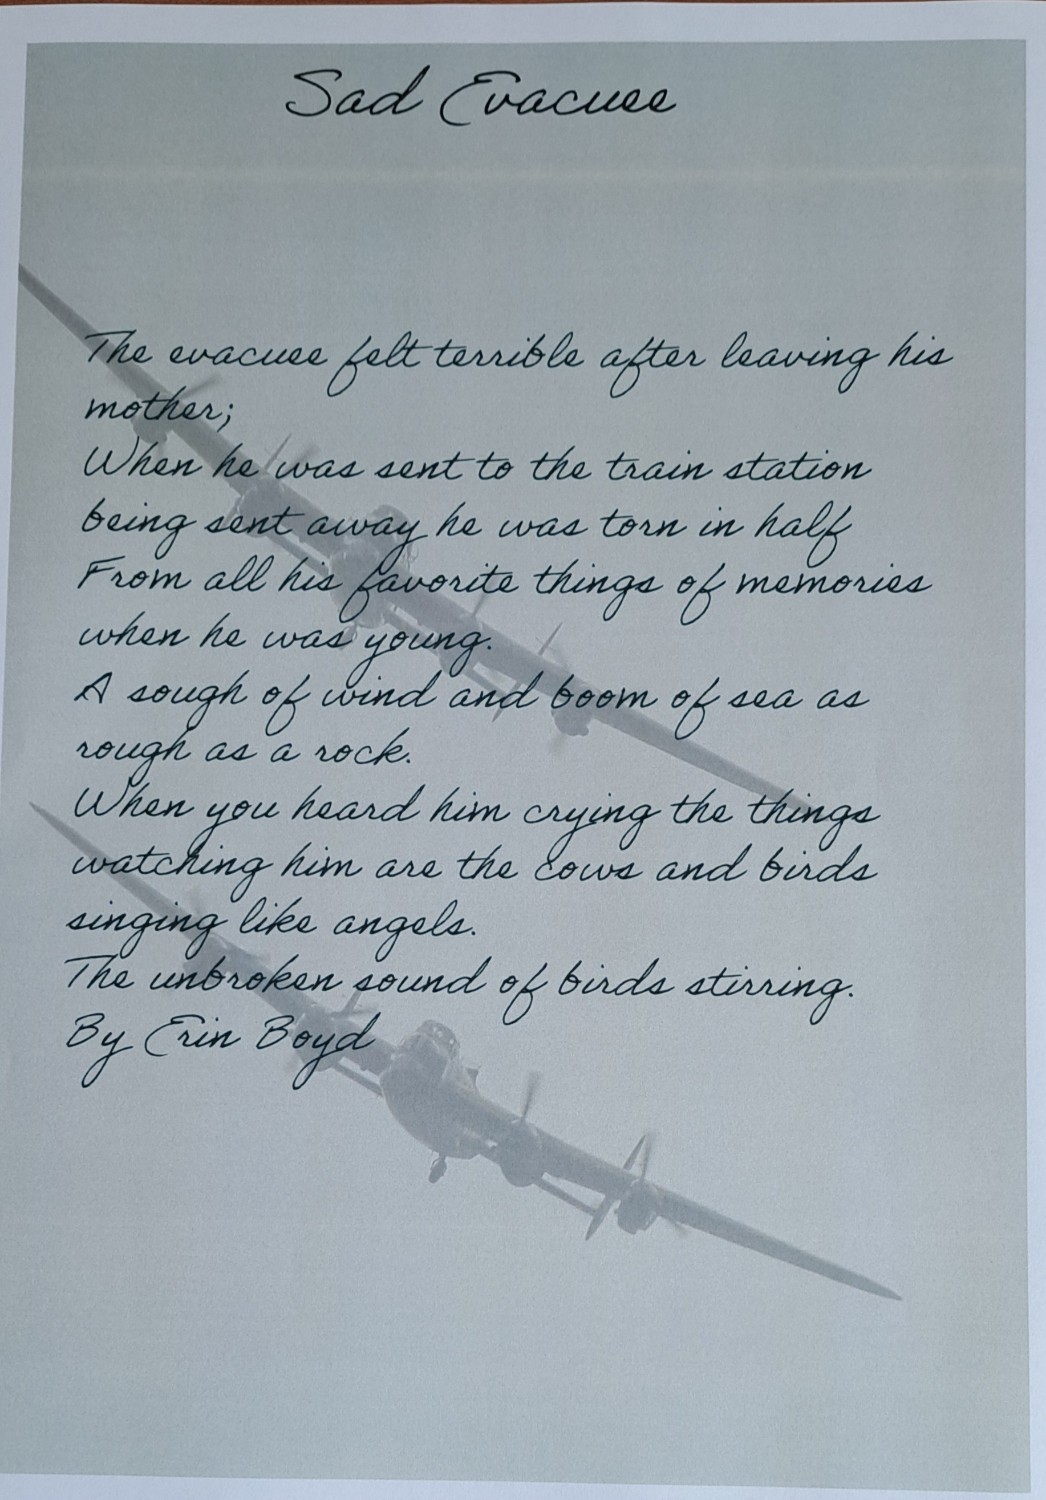 Sad Evacuee
The evacuee felt terrible after leaving his
mother;
When he was sent to the train station
being sent away he was torn in half
From all his favorite things of memories
when he was young.
A sough of wind and boom of sea as
rough as a rock.
When you heard him crying the things
watching him are the cows and birds
singing like angels.
The unbroken sound of birds stirring.
By Erin Boyd